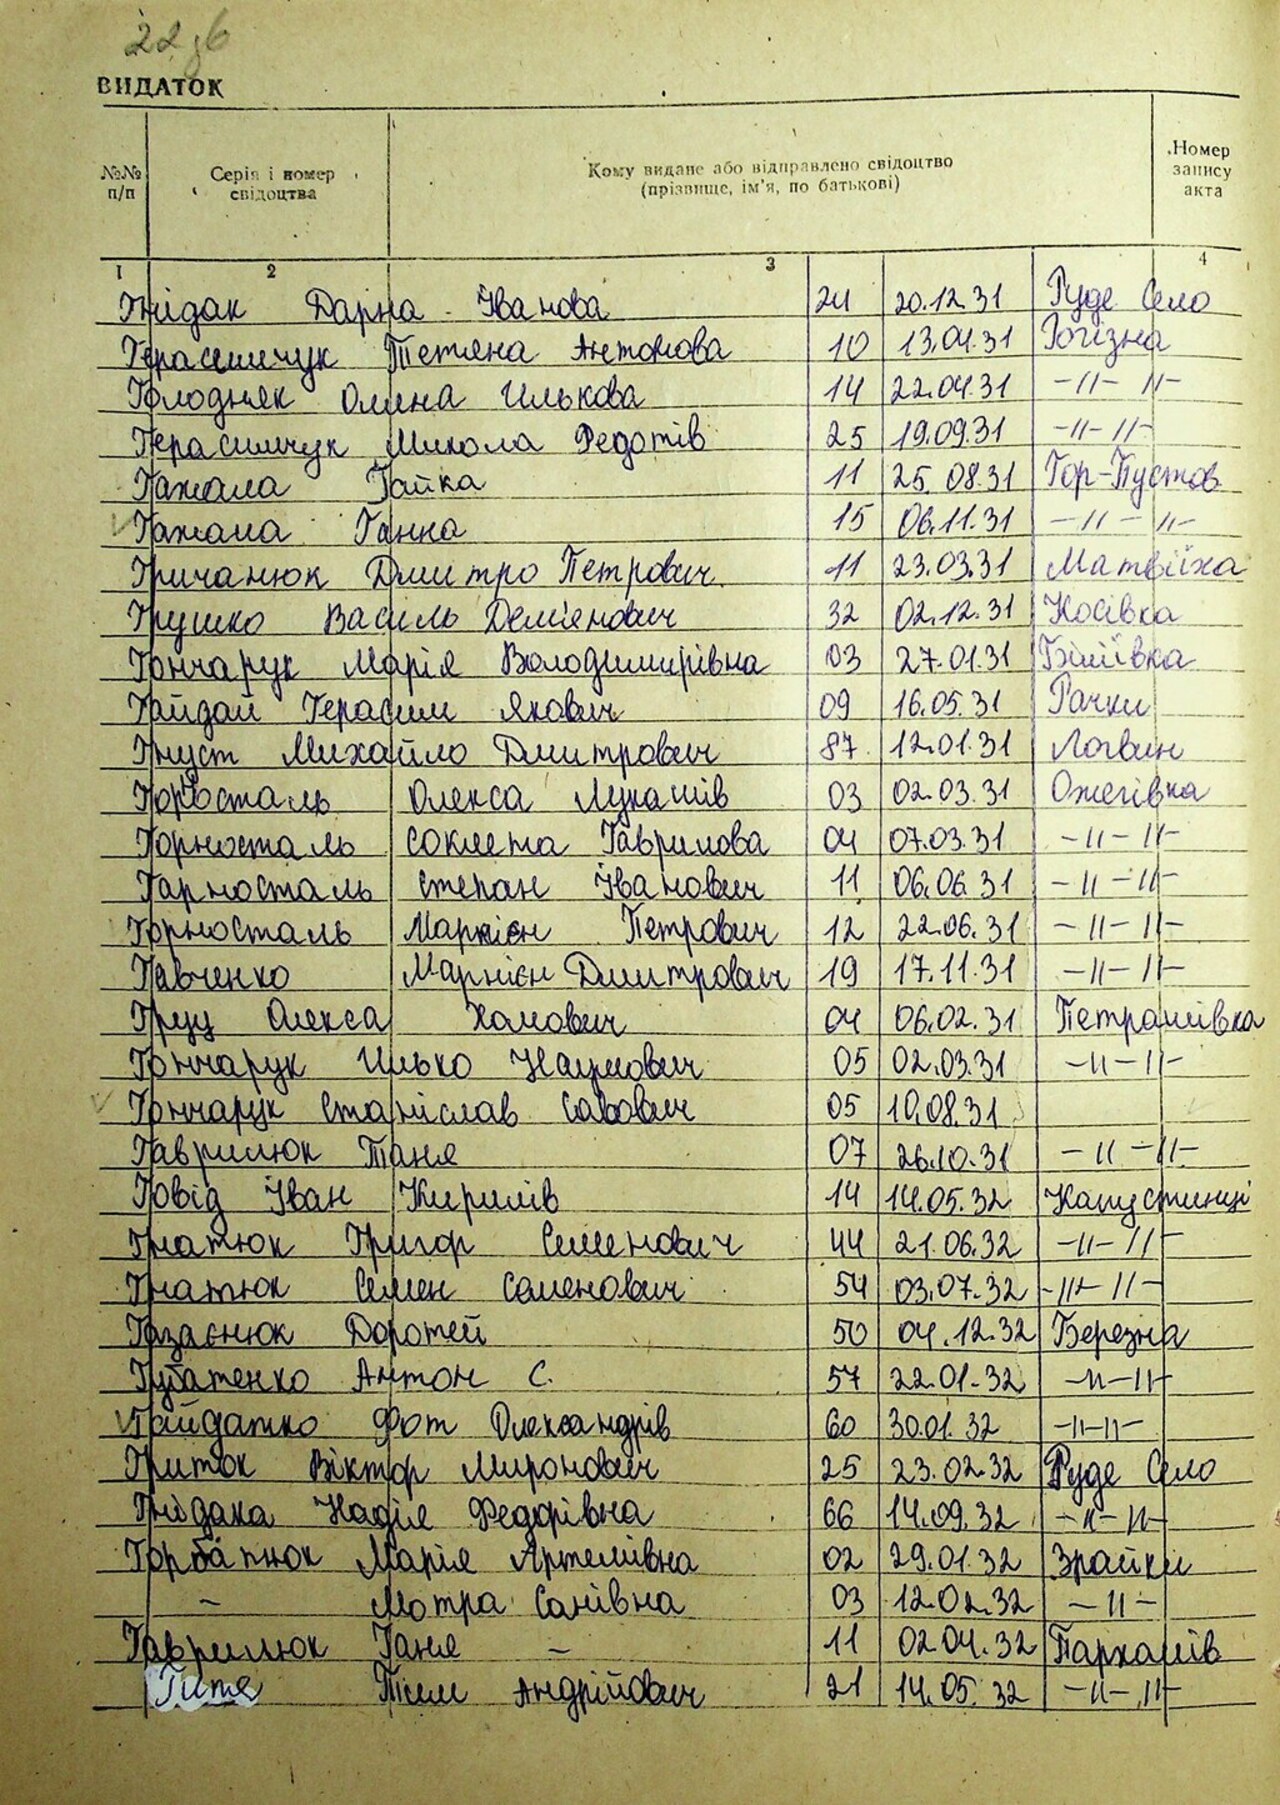 22 зб
ВИДАТОК
№№ п/п Серія і номер свідоцтва Кому видане або відправлено свідоцтво (прізвище, ім'я, по батькові) Номер запису акта
1 2 3 4
Гнідак Дарна Іванова 24 20.12.31 Руде Село
Герасимчук Тетяна Антонова 10 13.04.31 Рогізна
Голодняк Олена Илькова 14 22.04.31 -11- 11-
Герасимчук Микола Федотів 25 19.09.31 -11- 11-
Гажала Гапка 11 25.08.31 Гор-Пустов
Гажала Ганна 15 06.11.31 -11- 11-
Гричанюк Дмитро Петрович 11 23.03.31 Матвіїха
Грушко Василь Дем'янович 32 02.12.31 Косівка
Гончарук Марія Володимирівна 03 27.01.31 Біліївка
Гайдай Герасим Якович 09 16.05.31 Рачки
Гнуст Михайло Дмитрович 87 12.01.31 Логвин
Горносталь Олекса Лукашів 03 02.03.31 Ожегівка
Горносталь Соклета Гаврилова 04 07.03.31 -11- 11-
Гарносталь Степан Іванович 11 06.06.31 -11- 11-
Горносталь Маркіян Петрович 12 22.06.31 -11- 11-
Гавченко Маркіян Дмитрович 19 17.11.31 -11- 11-
Груц Олекса Хамович 04 06.02.31 Петрашівка
Гончарук Илько Наумович 05 02.03.31 -11- 11-
Гончарук Станіслав Савович 05 10.08.31
Гаврилюк Таня 07 26.10.31 -11- 11-
Говід Іван Кирилів 14 14.05.32 Капустинці
Гнатюк Григор Семенович 44 21.06.32 -11- 11-
Гнатюк Семен Семенович 54 03.07.32 -11- 11-
Газаєнюк Доротей 50 04.12.32 Березна
Губатенко Антон С. 57 22.01.32 -11-11-
Гайдатко Фот Олександрів 60 30.01.32 -11-11-
Гриток Віктор Миронович 25 23.02.32 Руде Село
Гнідака Надія Федорівна 66 14.09.32 -11- 11-
Горбатюк Марія Артемівна 02 29.01.32 Зрайки
- Мотра Санівна 03 12.02.32 -11-
Гаврилюк Ганя - 11 02.04.32 Пархомів
Гитя Тим Андрійович 21 14.05.32 -11- 11-